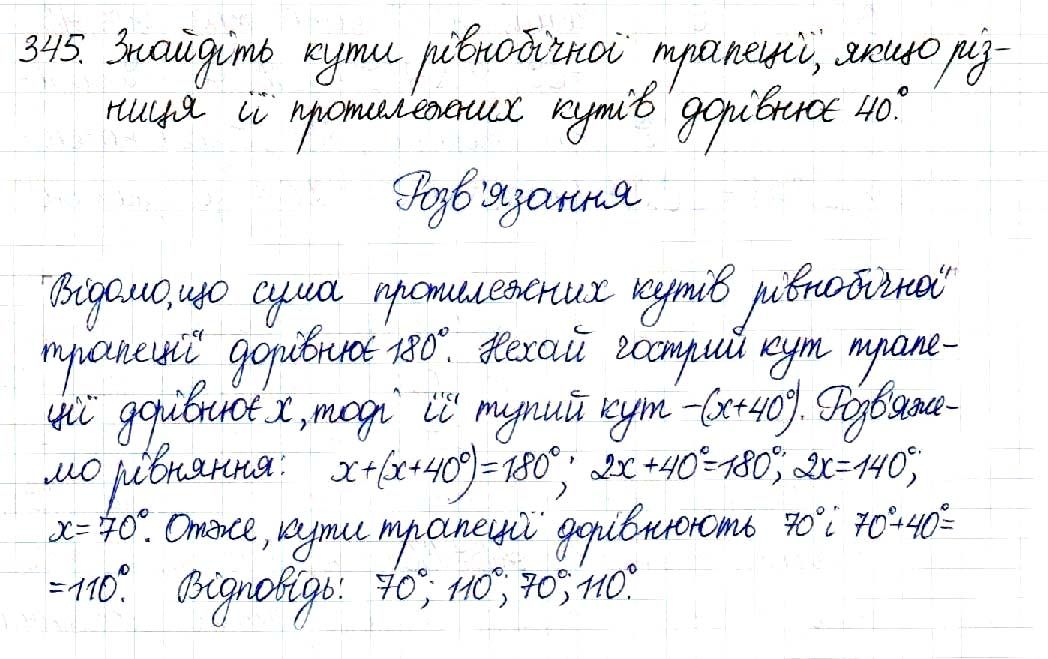 345. Знайдіть кути рівнобічної трапеції, якщо різ-
ниця її протилежних кутів дорівнює 40°.
Розв'язання
Відомо, що сума протилежних кутів рівнобічної
трапеції дорівнює 180°. Нехай гострий кут трапе-
ції дорівнює x, тоді її тупий кут –(x+40°). Розв'яже-
мо рівняння: x+(x+40°)=180°; 2x+40°=180°; 2x=140°;
x=70°. Отже, кути трапеції дорівнюють 70° і 70°+40°=
=110°. Відповідь: 70°; 110°; 70°; 110°.